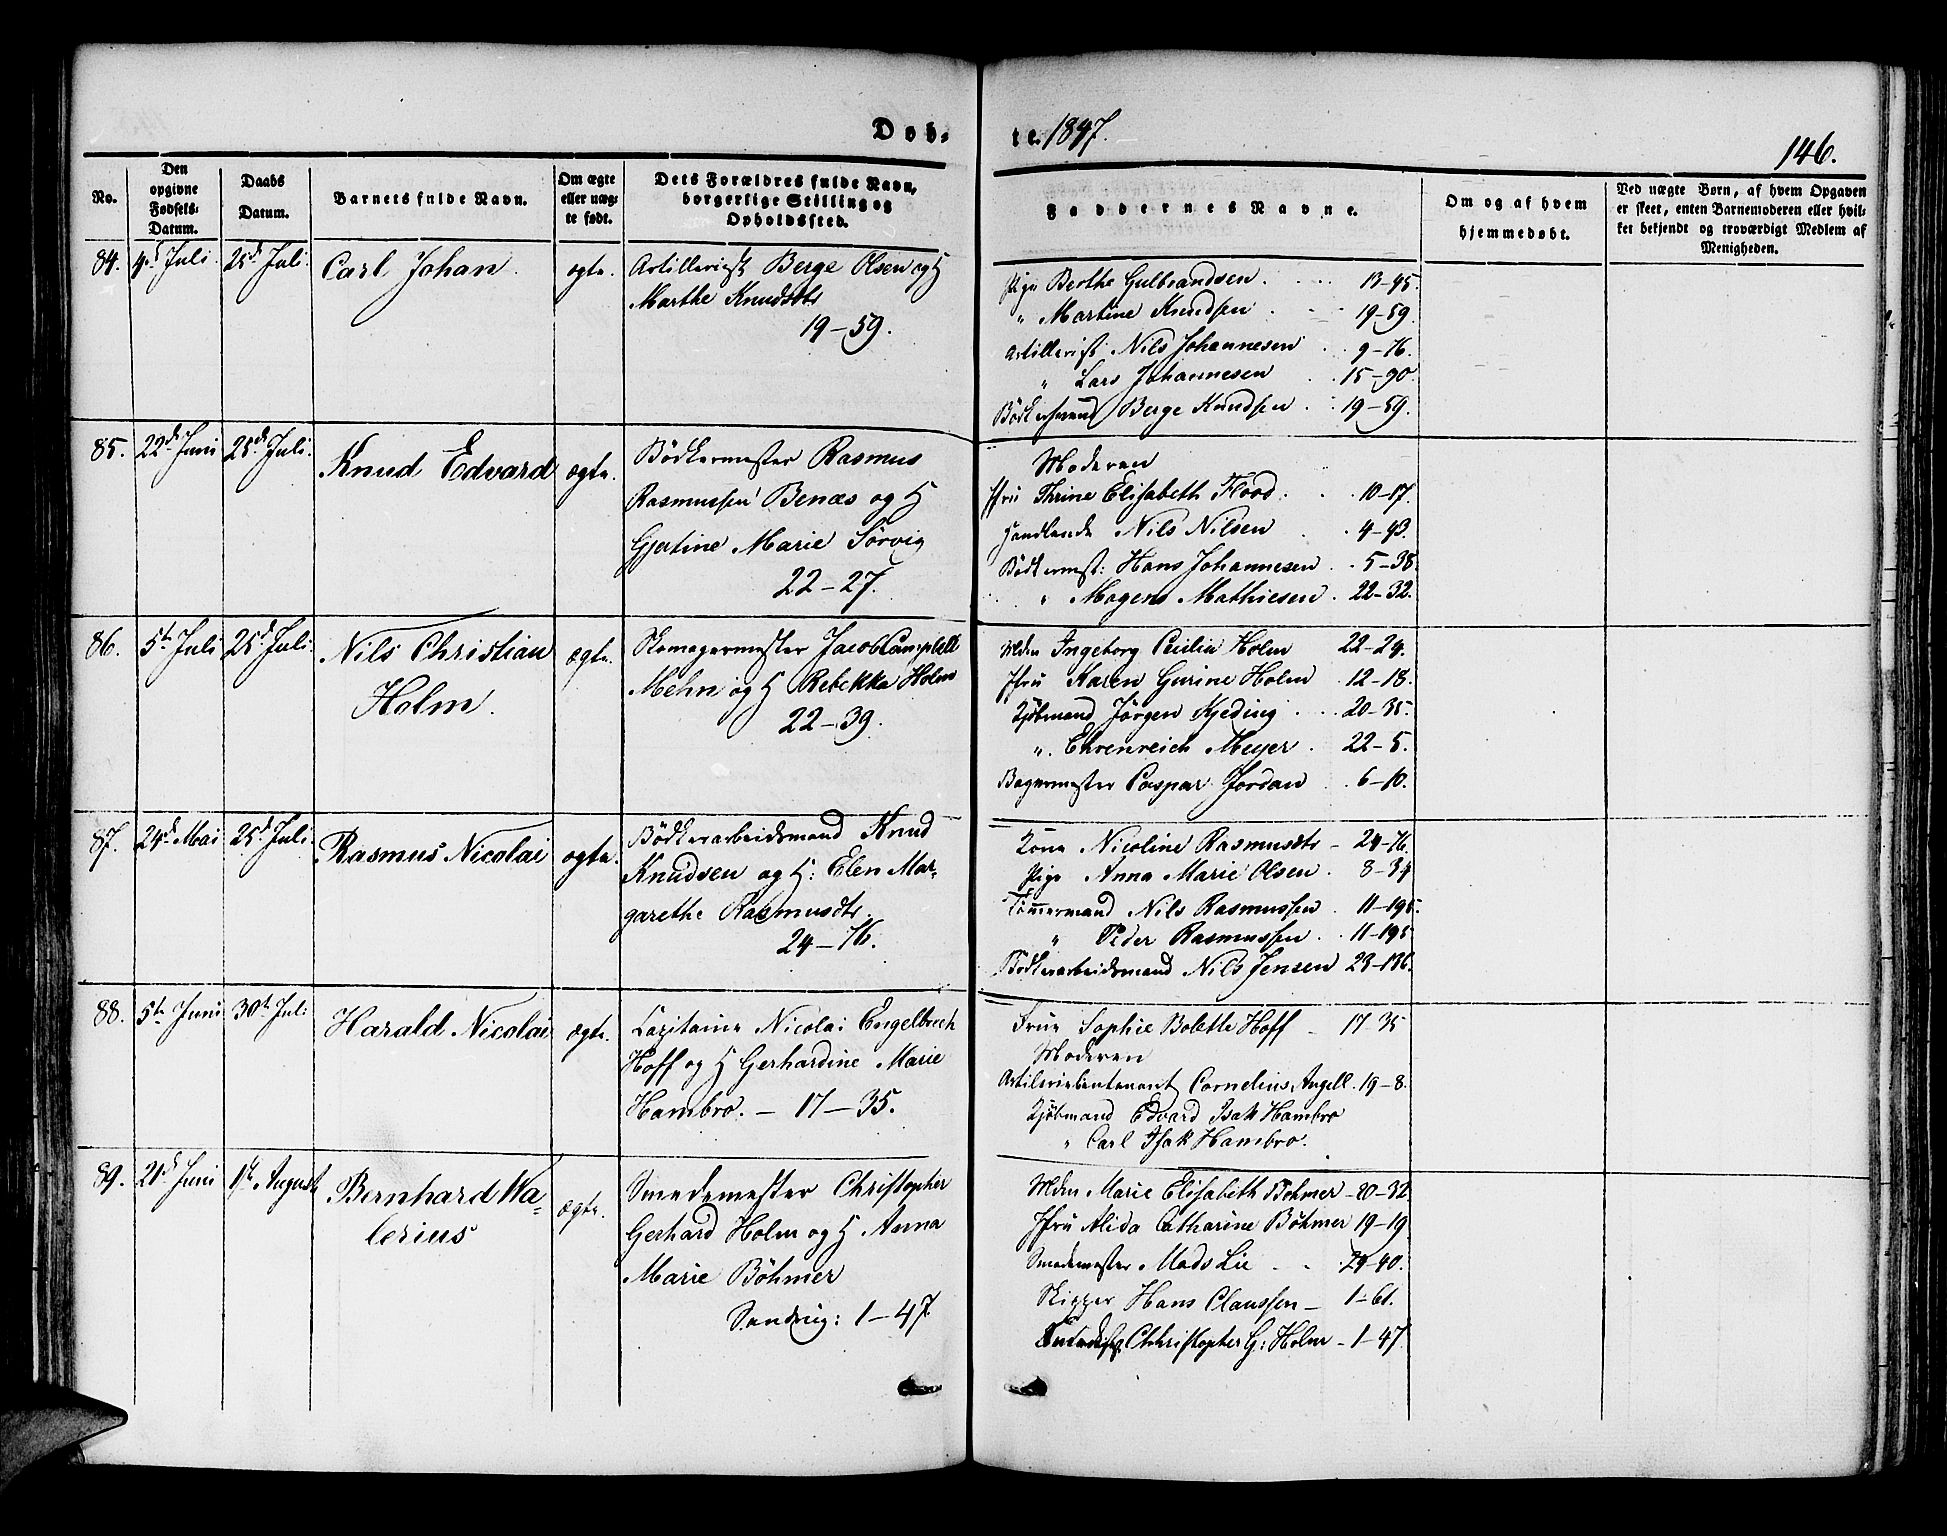 Døb-
te. 1847.
146.
No.
Den opgivne Fødsels-Datum.
Daabs Datum.
Barnets fulde Navn.
Om ægte eller uæg-te født.
Dets Forældres fulde Navn, borgerlige Stilling og Opholdssted.
Faddernes Navne.
Om og af hvem hjemmedøbt.
Ved uægte Børn, af hvem Opgaven er skeet, enten Barnemoderen eller hvil-ket bekjendt og troværdigt Medlem af Menigheden.
84. 4de Juli 25de Juli. Carl Johan. ægte.
Artillerist Berge Olsen og H
Marthe Knudsdtr
19-59.
Pige Berthe Gulbrandsen. 13-95.
" Martine Knudsen 19-59.
Artillerist Nils Johannesen 9-76.
" Lars Johannesen 15-90.
Bödkersvend Berge Knudsen 19-59.
85. 22de Juni 25de Juli. Knud Edvard ægte.
Bödkermester Rasmus
Rasmussen Benæs og H
Gjertine Marie Sörvig
22-27.
Moderen
Jfru Thrine Elisabeth Flood. 10-17.
Handlende Nils Nilsen 4-93.
Bödkermst: Hans Johannesen 5-38.
" Mogens Mathiesen. 22-32.
86. 5te Juli 25de Juli. Nils Christian
Holm. ægte.
Skomagermester Jacob Campbell
Mehn og H Rebekka Holm
22-39.
Mdm Ingeborg Cecilia Holm 22-24.
Jfru Karen Gurine Holm 12-18.
Kjöbmand Jörgen Kjeding 20-35.
". Ehrenreich Meyer 22-5.
Bagermester Caspar Jordan 6-10.
87. 24de Mai 25de Juli. Rasmus Nicolai ægte.
Bödkerarbeidsmand Knud
Knudsen og H: Elen Mar-
garethe Rasmusdtr.
24-76.
Kone Nicoline Rasmusdtr - 24-76.
Pige Anna Marie Olsen. 8-34
Tömmermand Nils Rasmussen. 11-195.
" Peder Rasmussen 11-195
Bödkerarbeidsmand Nils Jensen 23-186.
88. 5te Juni 30te Juli: Harald Nicolai ægte.
Capitaine Nicolai Engelbrech
Hoff og H Gerhardine Marie
Hambro. - 17-35.
Frue Sophie Bolette Hoff - 17-35
Moderen
Artilerielieutenant Cornelius Angell. 19-8.
Kjöbmand Edvard Isak Hambro
" Carl Isak Hambro.
89. 21de Juni 1ste August Bernhard Wa-
lerius ægte.
Smedemester Christopher
Gerhard Holm og H Anna
Marie Böhmer
Sandvig: 1-47.
Mdm Marie Elisabeth Böhmer - 20-32
Jfru Alida Catharine Böhmer 19-19
Smedemester Mads Lie 24-40.
Skipper Hans Claussen - 1-61.
Christopher G: Holm - 1-47.